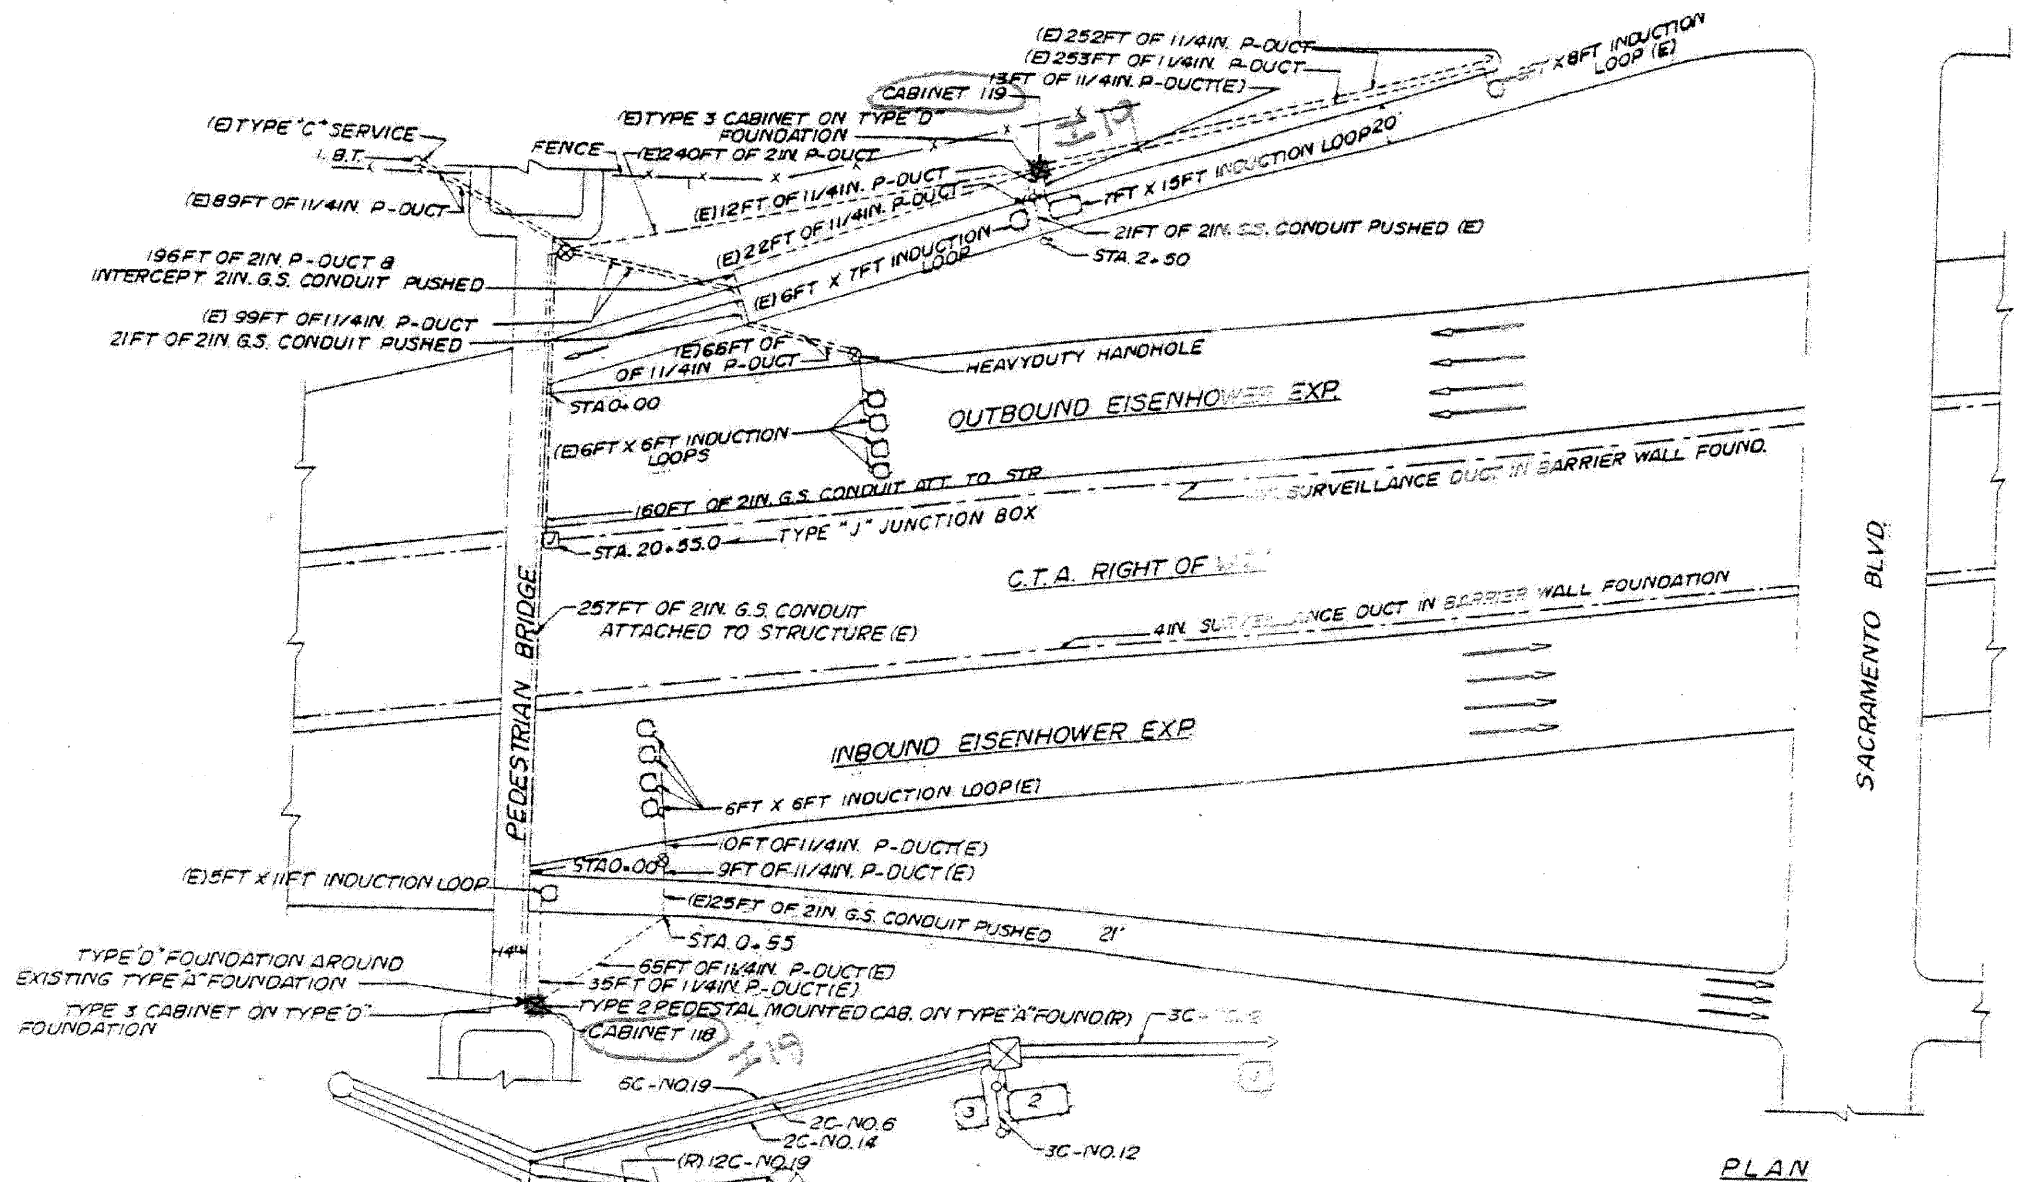 (E)252FT OF 11/4IN. P-DUCT
(E)253FT OF 11/4IN. P-DUCT
13FT OF 11/4IN. P-DUCT(E)
X 8FT INDUCTION
LOOP (E)
CABINET 119
I 19
(E)TYPE 3 CABINET ON TYPE "D"
FOUNDATION
(E)TYPE "C" SERVICE
I.B.T.
FENCE
(E)240FT OF 2IN. P-DUCT
(E)89FT OF 11/4IN. P-DUCT
(E)12FT OF 11/4IN. P-DUCT
(E)22FT OF 11/4IN. P-DUCT
20'
7FT X 15FT INDUCTION LOOP
21FT OF 2IN. G.S. CONDUIT PUSHED (E)
STA. 2+50
(E)6FT X 7FT INDUCTION
LOOP
196FT OF 2IN. P-DUCT &
INTERCEPT 2IN. G.S. CONDUIT PUSHED
(E) 99FT OF 11/4IN. P-DUCT
21FT OF 2IN. G.S. CONDUIT PUSHED
(E)66FT OF
OF 11/4IN. P-DUCT
HEAVYDUTY HANDHOLE
STA 0+00
OUTBOUND EISENHOWER EXP.
(E)6FT X 6FT INDUCTION
LOOPS
160FT OF 2IN. G.S. CONDUIT ATT. TO STR.
SURVEILLANCE DUCT IN BARRIER WALL FOUND.
J
STA. 20+55.0
TYPE "J" JUNCTION BOX
C.T.A. RIGHT OF
PEDESTRIAN BRIDGE
257FT OF 2IN. G.S. CONDUIT
ATTACHED TO STRUCTURE (E)
4IN. SURVEILLANCE DUCT IN BARRIER WALL FOUNDATION
SACRAMENTO BLVD.
INBOUND EISENHOWER EXP.
6FT X 6FT INDUCTION LOOP(E)
10FT OF 11/4IN. P-DUCT(E)
STA 0+00
9FT OF 11/4IN. P-DUCT(E)
(E)5FT X 11FT INDUCTION LOOP
(E)25FT OF 2IN. G.S. CONDUIT PUSHED
21'
STA. 0+55
14'
TYPE "D" FOUNDATION AROUND
EXISTING TYPE "A" FOUNDATION
65FT OF 11/4IN. P-DUCT(E)
35FT OF 11/4IN. P-DUCT(E)
TYPE 3 CABINET ON TYPE "D"
FOUNDATION
TYPE 2 PEDESTAL MOUNTED CAB. ON TYPE "A" FOUND.(R)
CABINET 118
I 19
3C-
6C-NO.19
2C-NO.6
2C-NO.14
3
2
1
3C-NO.12
(R) 12C-NO.19
PLAN